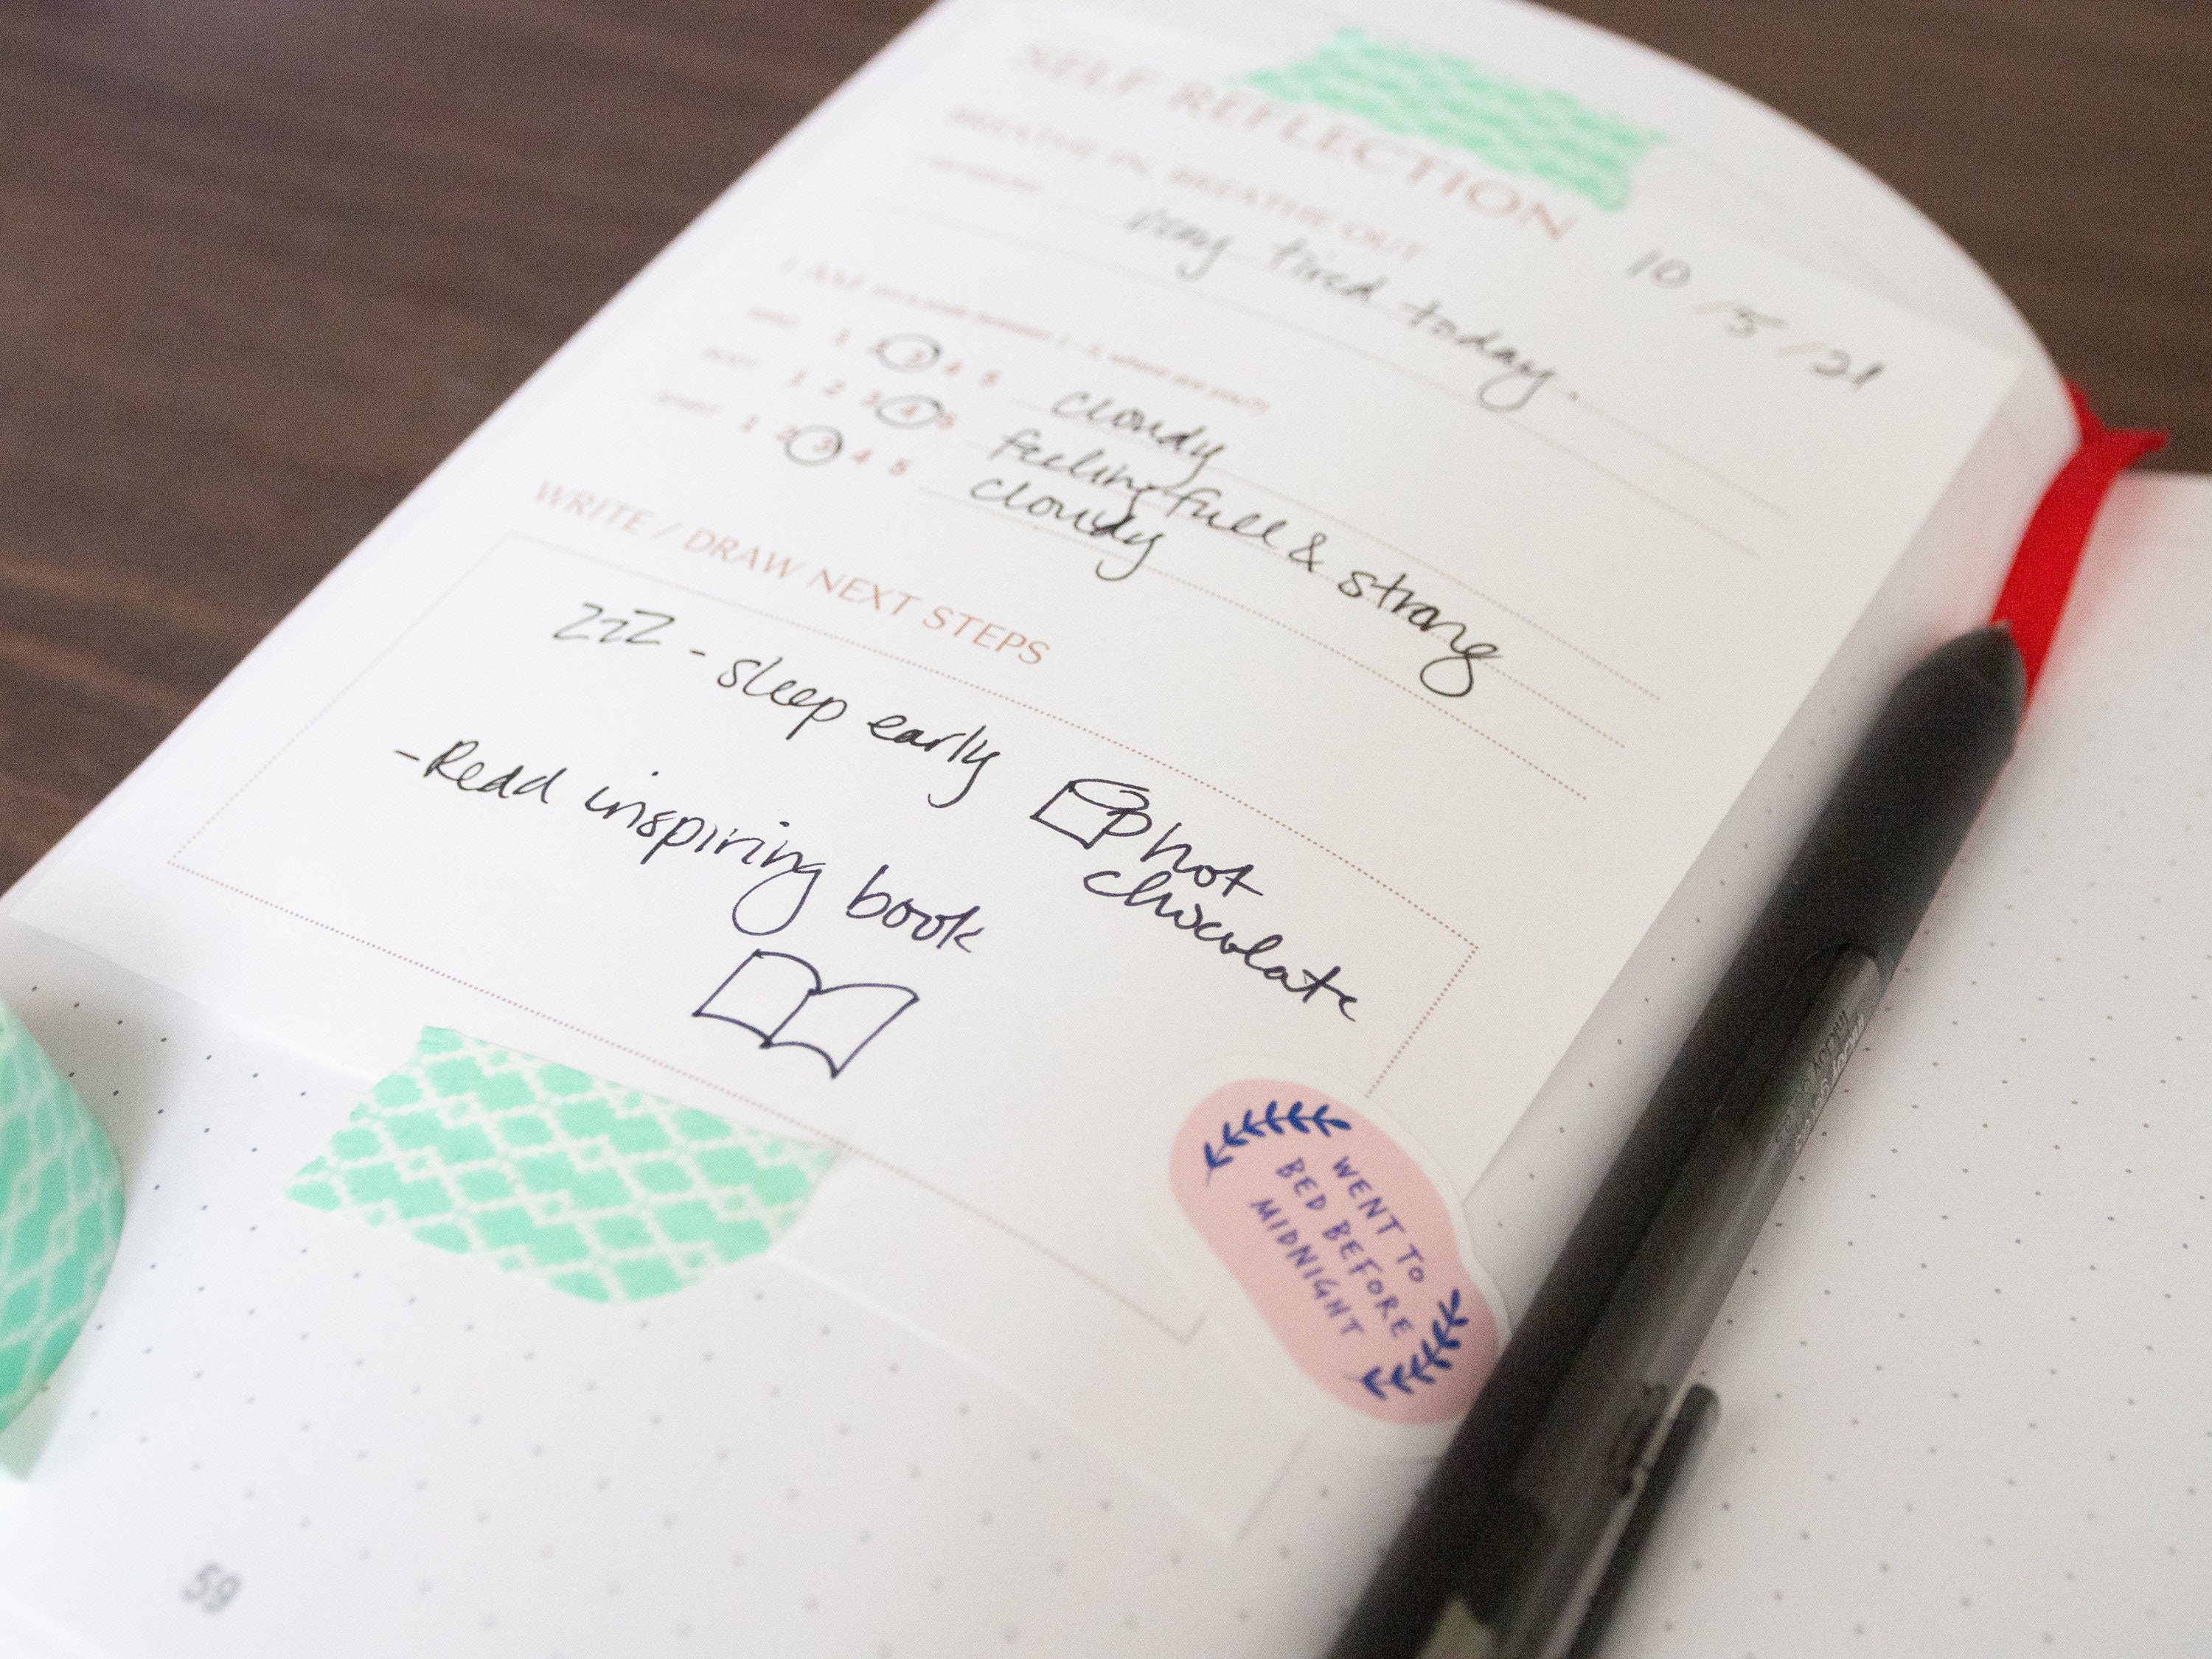 SELF REFLECTION
10/5/21
BREATHE IN, BREATHE OUT
very tired today.
I AM (on a scale between 1-5, where are you?)
MIND 1 2 3 4 5 cloudy
BODY 1 2 3 4 5 feeling full & strong
SPIRIT 1 2 3 4 5 cloudy
WRITE / DRAW NEXT STEPS
ZzZ - sleep early
hot
chocolate
- Read inspiring book
WENT TO
BED BEFORE
MIDNIGHT
59